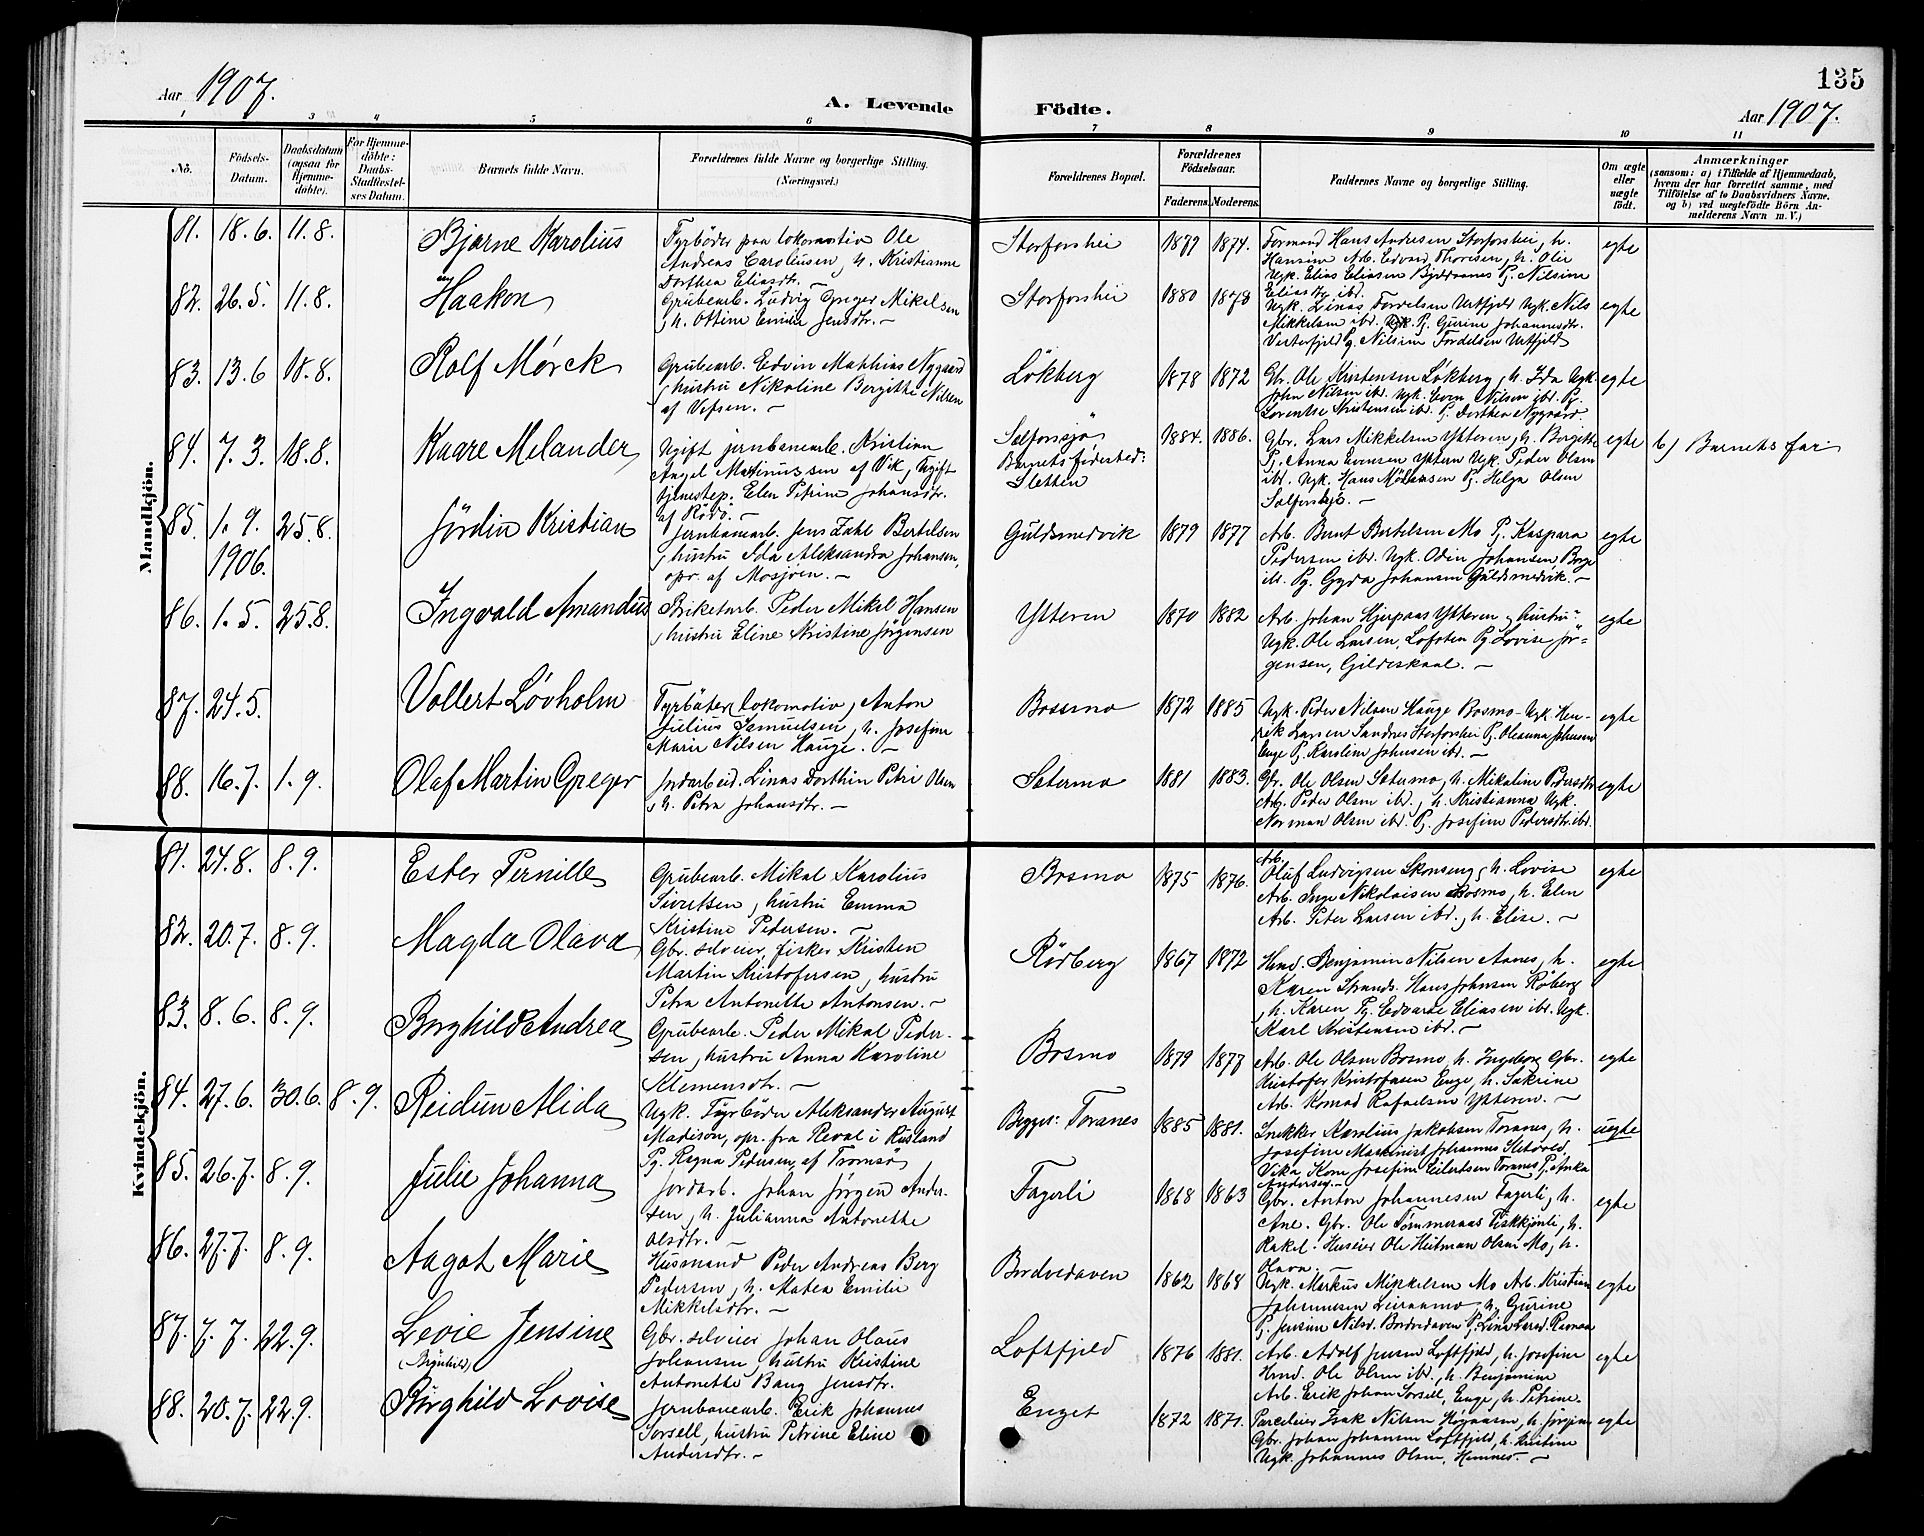 135
Aar 1907.
A. Levende Födte.
Aar 1907.
1 3 4 5 6 7 8 9 10 11
No.
Födsels-Datum.
Daabsdatum (ogsaa for Hjemmedöbte).
For Hjemmedöbte: Daabs-Stadfæstelses Datum.
Barnets fulde Navn.
Forældrenes fulde Navne og borgerlige Stilling. (Næringsvei.)
Forældrenes Bopæl.
Forældrenes Födselsaar.
Faderens. Moderens.
Faddernes Navne og borgerlige Stilling.
Om ægte eller uægte födt.
Anmærkninger
(saasom: a) i Tilfælde af Hjemmedaab, hvem der har forrettet samme, med Tilföielse af to Daabsvidners Navne, og b) ved uægtefödte Börn Anmelderens Navn m. V.)
Mandkjön.
81. 18.6. 11.8. Bjarne Karolius
Fyrböder paa lokomotiv Ole
Andreas Caroliussen, h. Kristianne
Dorthea Eliasdtr. —
Storforshei 1879 1874.
Formand Hans Andresen Storforshei, h.
Hansine Arb. Edvard Thoresen, h. Olie
Ugk. Elias Eliasen Pg. Nilsine
Eliasdtr ibd.
egte
82. 26.5. 11.8. Haakon
Grubearb. Ludvig Greger Mikelsen
, h. Ottine Emilie Jensdtr. —
Storforshei 1880 1878
Ugk. Linas Tordelsen Urtfjeld Ugk. Nils
Mikkelsen ibd. Pg. Gurine Johannesdtr.
Vesterfjeld Pg. Nilsine Tordelsen Urtfjeld
egte
83. 13.6 18.8. Rolf Mørck
Grubearb. Edvin Mathias Nygaard
, hustru Nikoline Borgitte Nilsen
af Vefsen. —
Lökberg 1878 1872
Gbr. Ole Kristensen Lökberg, h. Ida Ugk.
John Nilsen ibd. Ugk. Even Nilsen ibd. Pg.
Lorentse Kristensen ibd. Pg. Dorthea Nygaard
egte
84. 7.3. 18.8. Kaare Melander
Ugift jernbanearb. Kristian
Angel Martinussen af Vik, Ugift
tjenestep. Elen Petrine Johansdtr.
af Rödö. —
Selforssjö
Barnets födested:
Sletten
1884. 1886.
Gbr. Lars Mikkelsen Ytteren, h. Borgitte
Pg. Anna Evensen Yttern Ugk. Peder Olsen
ibd. Ugk. Hans Pg. Helga Olsen
Selforssjö. —
egte b) Barnets far
85. 1.9. 1906. 25.8. Jördin Kristian
Jernbanearb. Jens Zahl Bertilsen
, hustru Ida Aleksandra Johansen,
opr. af Mosjøen. —
Guldsmedvik 1879 1877
Arb. Bernt Bertelsen Mo Pg. Kaspara
Pedersen ibd. Ugk. Odin Johansen Borge
ill. Pg. Gyda Johansen Guldsmedvik. —
egte
86. 1.5. 25.8. Ingvald Amandus
Briketarb. Peder Mikal Hansen
, hustru Eline Kristine Jörgensen
Ytteren 1870 1882
Arb. Johan Hjerpaas Ytteren, hustru
Ugk. Ole Larsen, Lofoten Pg. Lovise Jör-
gensen, Gildeskaal. —
egte
87. 24.5. Vollert Lövholm
Fyrböter, lokomotiv, Anton
Julius Samuelsen, h. Josefine
Marie Nilsen Hauge. —
Bossmo 1872 1885
Ugk. Peder Nilsen Hauge Bosmo Ugk. Hen-
rik Larsen Sandnes Storforshei Pg. Oleanna Johnsen
Enge Pg. Karoline Johnsen ibd. —
egte
88. 16.7. 1.9. Olaf Martin Greger
Jordarbeid. Linas Dorthin Petri Olsen
, h. Petra Johansdtr. —
Setermo 1881 1883.
Gbr. Ole Olsen Setermo, h. Mikaline Pedersdtr
Arb. Peder Olsen ibd., h. Kristianna Ugk.
Norman Olsen ibd. Pg. Josefine Pedersdtr. ibd.
egte
Kvindekjön.
81. 24.8. 8.9. Ester Pernille
Grubearb. Mikal Karolius
Sivertsen, hustru Emma
Kristine Pedersen. —
Bosmo 1875 1876.
Arb. Oluf Ludvigsen Skonseng, h. Lovise
Arb. Inge Nikolaisen Bosmo, h. Elen
Arb. Peter Larsen ibd., h. Elise. —
egte
82. 20.7. 8.9. Magda Olava
Gbr. selveier, fisker Kristen
Martin Kristofersen, hustru
Petra Antonette Antonsen. —
Rödberg 1867 1872
Hmd. Benjamin Nilsen Aanes, h.
Karen Strands. Hans Johnsen Röberg
, h. Karen Pg. Edvarda Eliasen ibd. Ugk.
Karl Kristensen ibd. —
egte
83. 8.6. 8.9. Borghild Andrea
Grubearb. Peder Mikal Peder-
sen, hustru Anna Karoline
Klemensdtr. —
Bosmo 1879 1877
Arb. Ole Olsen Bosmo, h. Ingeborg Gbr.
Kristofer Kristofersen Enge, h. Sakrine
Arb. Konrad Rafaelsen Ytteren. —
egte
84. 27.6. 30.6. 8.9. Reidun Alida
Ugk. Fyrböder Aleksander August
Madison, opr. fra Reval i Rusland
Pg. Ragna Pedersen, af Tromsö
Begges: Toranes 1885 1881.
Snekker Karolius Jakobsen Toranes, h.
Josefine Maskinist Johannes Sletvold,
Vika Kone Josefine Seilertsen Toranes Pg. Anka
Andersen. —
uegte
85. 26.7. 8.9. Julie Johanna
Jordarb. Johan Jörgen Ander-
sen, h. Julianna Antonette
Olsdtr. —
Fagerli 1868 1863
Gbr. Anton Johannesen Fagerli, h.
Ane. Gbr. Ole Tömmeraas Fiskkjönli, h.
Rakel. Huseier Ole Heitman Olsen Mo, h.
Olava. —
egte
86. 27.7. 8.9. Aagot Marie
Husmand Peder Andreas Berg
Pedersen, h. Matea Emilie
Mikkelsdtr. —
Bordvedaven 1862 1868
Ugk. Markus Mikkelsen Mo Arb. Kristian
Johannesen, h. Gurine
Pg. Jensine Nilsd. Bordvedaven Pg. Lina Larsd. Ravnaa
egte
87. 7.7. 22.9. Levie Jensine
(Brynhild)
Gbr. selveier Johan Olaus
Johansen, hustru Kristine
Antonette Bang Jensdtr.
Loftfjeld 1876 1881.
Arb. Adolf Jensen Loftfjeld, h. Josefine
Hmd. Ole Olsen ibd., h. Benjamine
Arb. Erik Johan Sorsell, Enge, h. Petrine.
egte
88. 20.7. 22.9. Borghild Lovise
Jernbanearb. Erik Johannes
Sorsell, hustru Petrine Eline
Andersdtr. —
Enget 1872 1871.
Parceleier Isak Nilsen, h. Jörgine
Gbr. Johan Johansen Loftfjeld, h. Kristine
Ugk. Johannes Olsen, Hemnes. —
egte